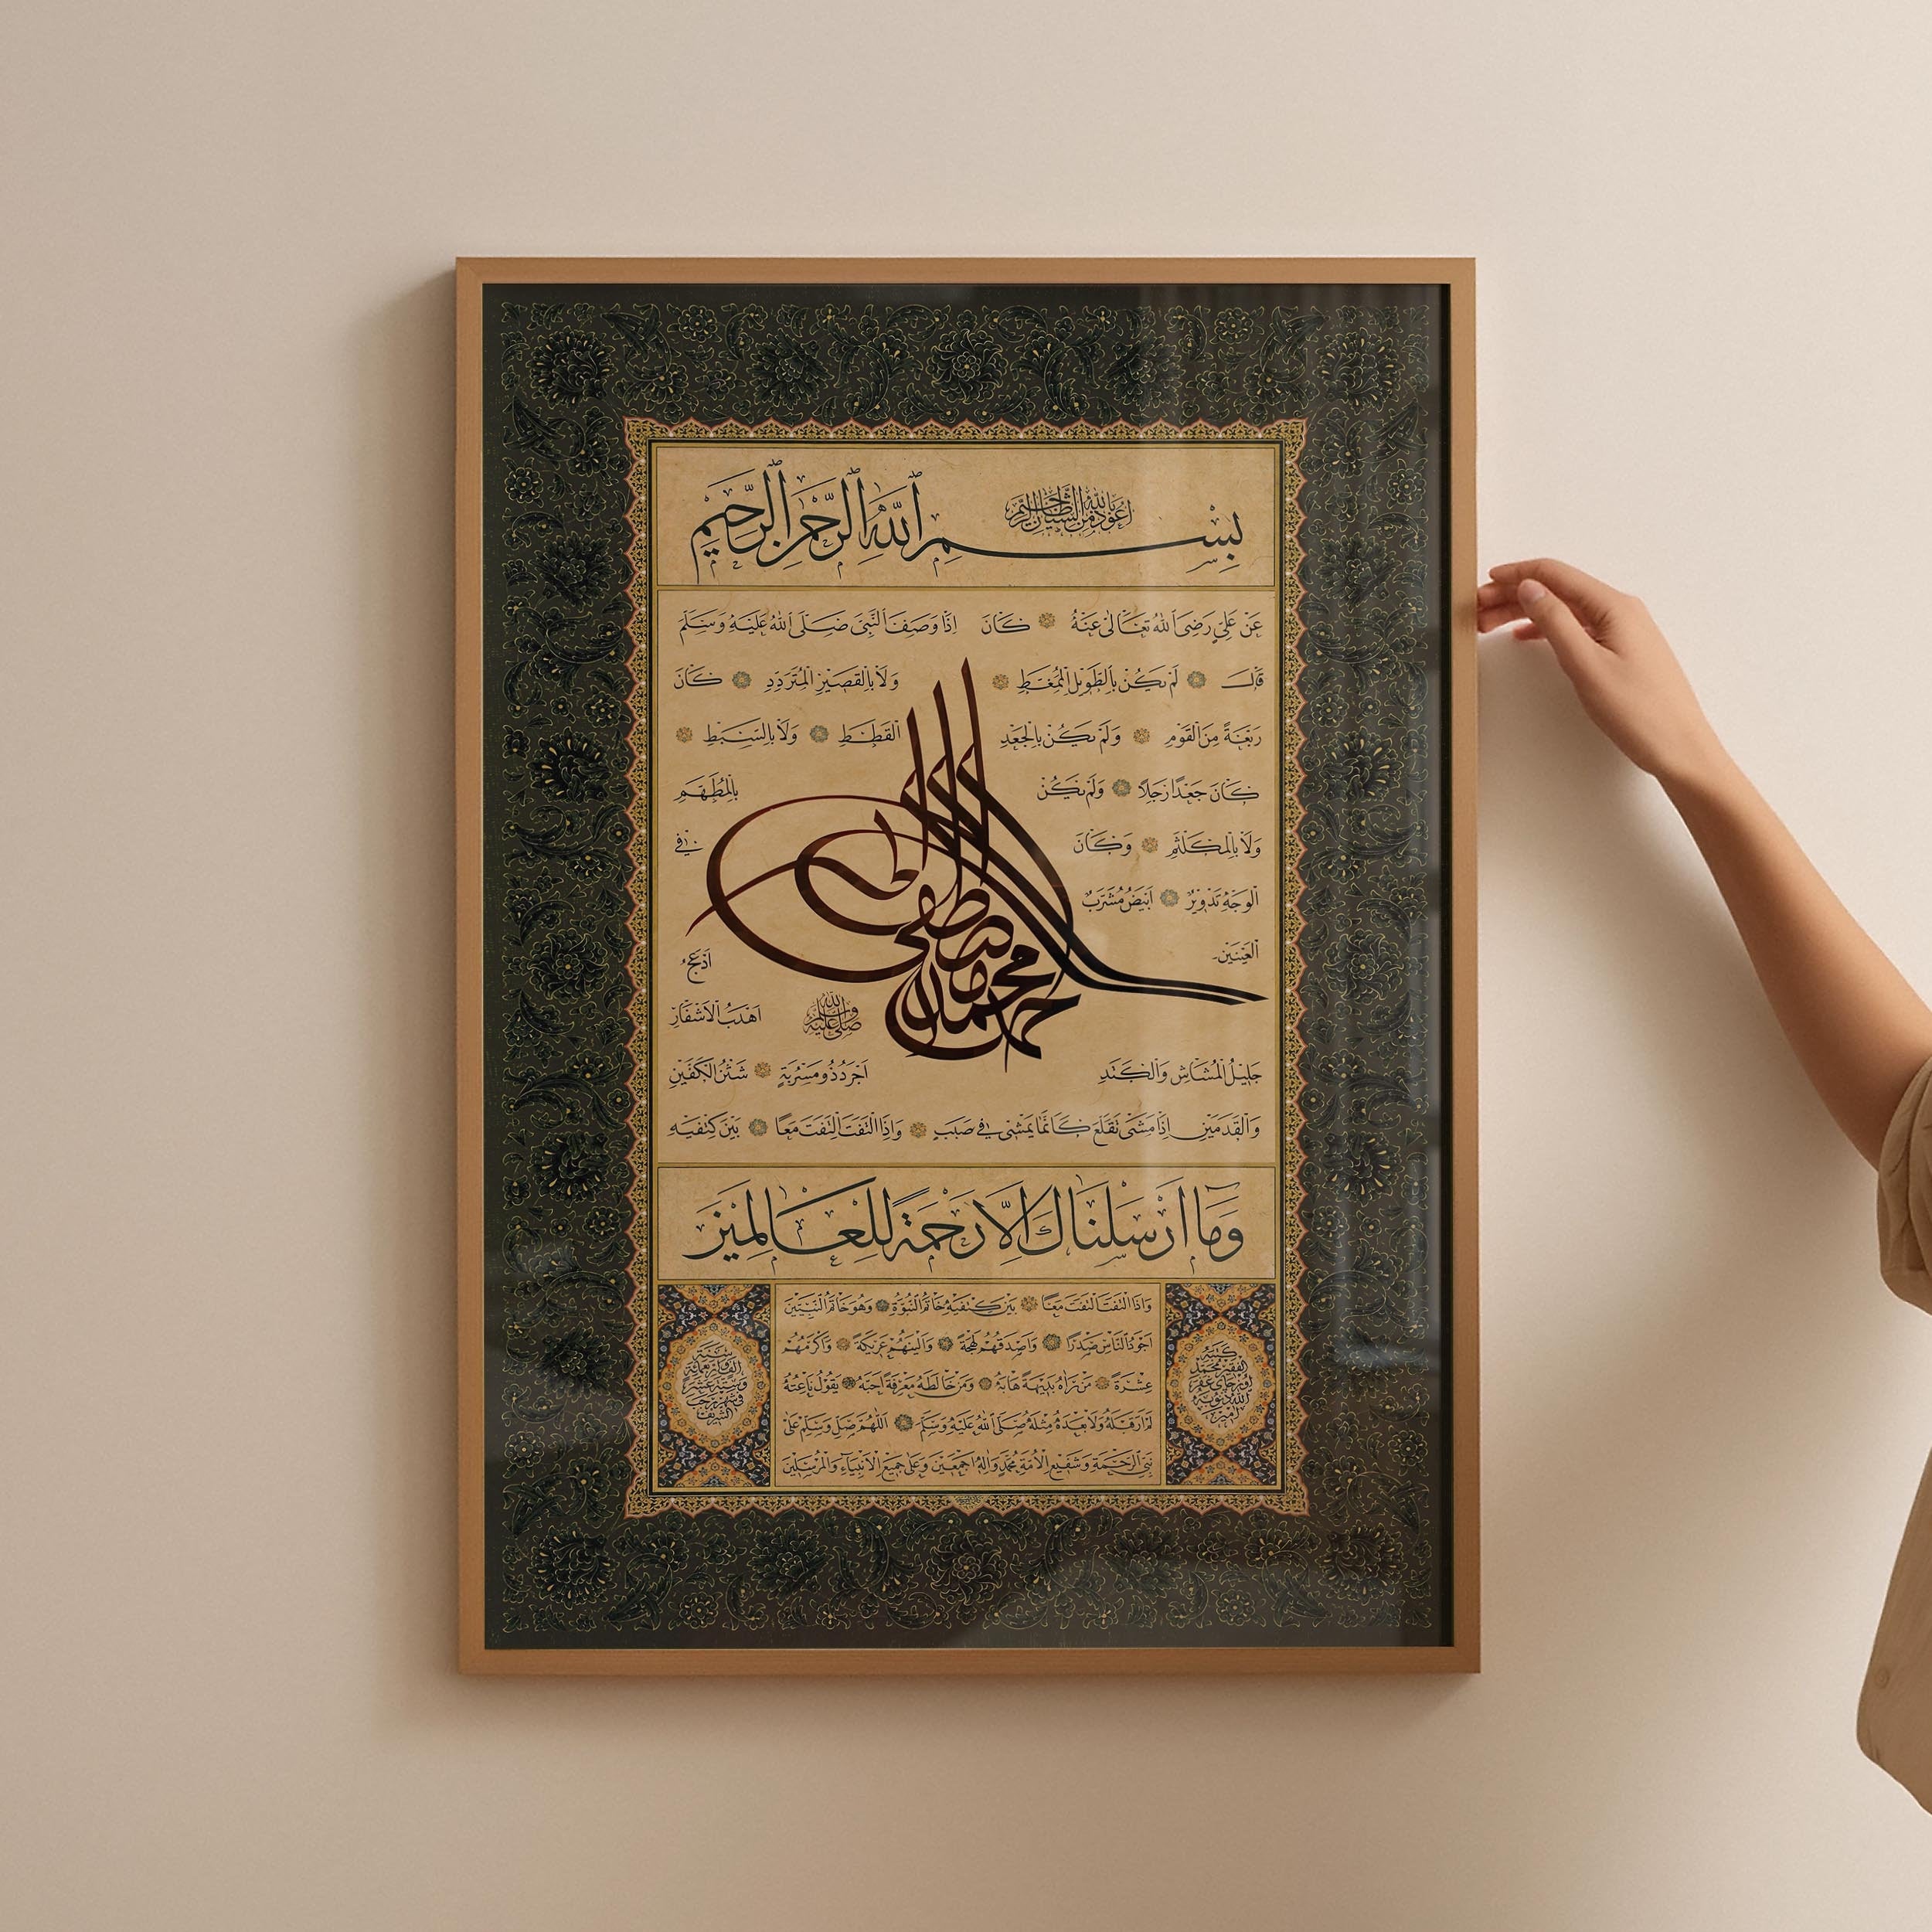 بِسْمِ اللَّهِ الرَّحْمَنِ الرَّحِيمِ
أعوذ بالله من الشيطان الرجيم
عَنْ عَلِيٍّ رَضِىَ اللهُ تَعَالٰى عَنْهُ كَانَ اِذَا وَصَفَ النَّبِىَّ صَلَّى اللهُ عَلَيْهِ وَسَلَّمَ
قَالَ لَمْ يَكُنْ بِالطَّوِيلِ الْمُمَّغِطِ وَلَا بِالْقَصِيرِ الْمُتَرَدِّدِ كَانَ
رَبْعَةً مِنَ الْقَوْمِ وَلَمْ يَكُنْ بِالْجَعْدِ الْقَطَطِ وَلَا بِالسَّبْطِ
كَانَ جَعْدًا رَجِلًا وَلَمْ يَكُنْ بِالْمُطَهَّمِ
وَلَا بِالْمُكَلْثَمِ وَكَانَ فِي
الْوَجْهِ تَدْوِيرٌ اَبْيَضُ مُشْرَبٌ
اَدْعَجُ الْعَيْنَيْنِ
اَهْدَبُ الْاَشْفَارِ
محمد مصطفى
صلى الله عليه وسلم
جَلِيلُ الْمُشَاشِ وَالْكَتَدِ اَجْرَدُ ذُو مَسْرُبَةٍ شَثْنُ الْكَفَّيْنِ
وَالْقَدَمَيْنِ اِذَا مَشَى تَقَلَّعَ كَاَنَّمَا يَمْشِى فِي صَبَبٍ وَاِذَا الْتَفَتَ الْتَفَتَ مَعًا بَيْنَ كَتِفَيْهِ
وَمَا اَرْسَلْنَاكَ اِلَّا رَحْمَةً لِلْعَالَمِينَ
وَاِذَا الْتَفَتَ الْتَفَتَ مَعًا بَيْنَ كَتِفَيْهِ خَاتَمُ النُّبُوَّةِ وَهُوَ خَاتَمُ النَّبِيّينَ
اَجْوَدُ النَّاسِ صَدْرًا وَاَصْدَقُهُمْ لَهْجَةً وَاَلْيَنُهُمْ عَرِيكَةً وَاَكْرَمُهُمْ
عِشْرَةً مَنْ رَاٰهُ بَدِيهَةً هَابَهُ وَمَنْ خَالَطَهُ مَعْرِفَةً اَحَبَّهُ يَقُولُ نَاعِتُهُ
لَمْ اَرَ قَبْلَهُ وَلَا بَعْدَهُ مِثْلَهُ صَلَّى اللهُ عَلَيْهِ وَسَلَّمَ اَللّٰهُمَّ صَلِّ وَسَلِّمْ عَلٰى
نَبِيِّ الرَّحْمَةِ وَشَفِيعِ الْاُمَّةِ مُحَمَّدٍ وَاٰلِهِ اَجْمَعِينَ وَعَلٰى جَمِيعِ الْاَنْبِيَاءِ وَالْمُرْسَلِينَ
كتبه
الفقير محمد